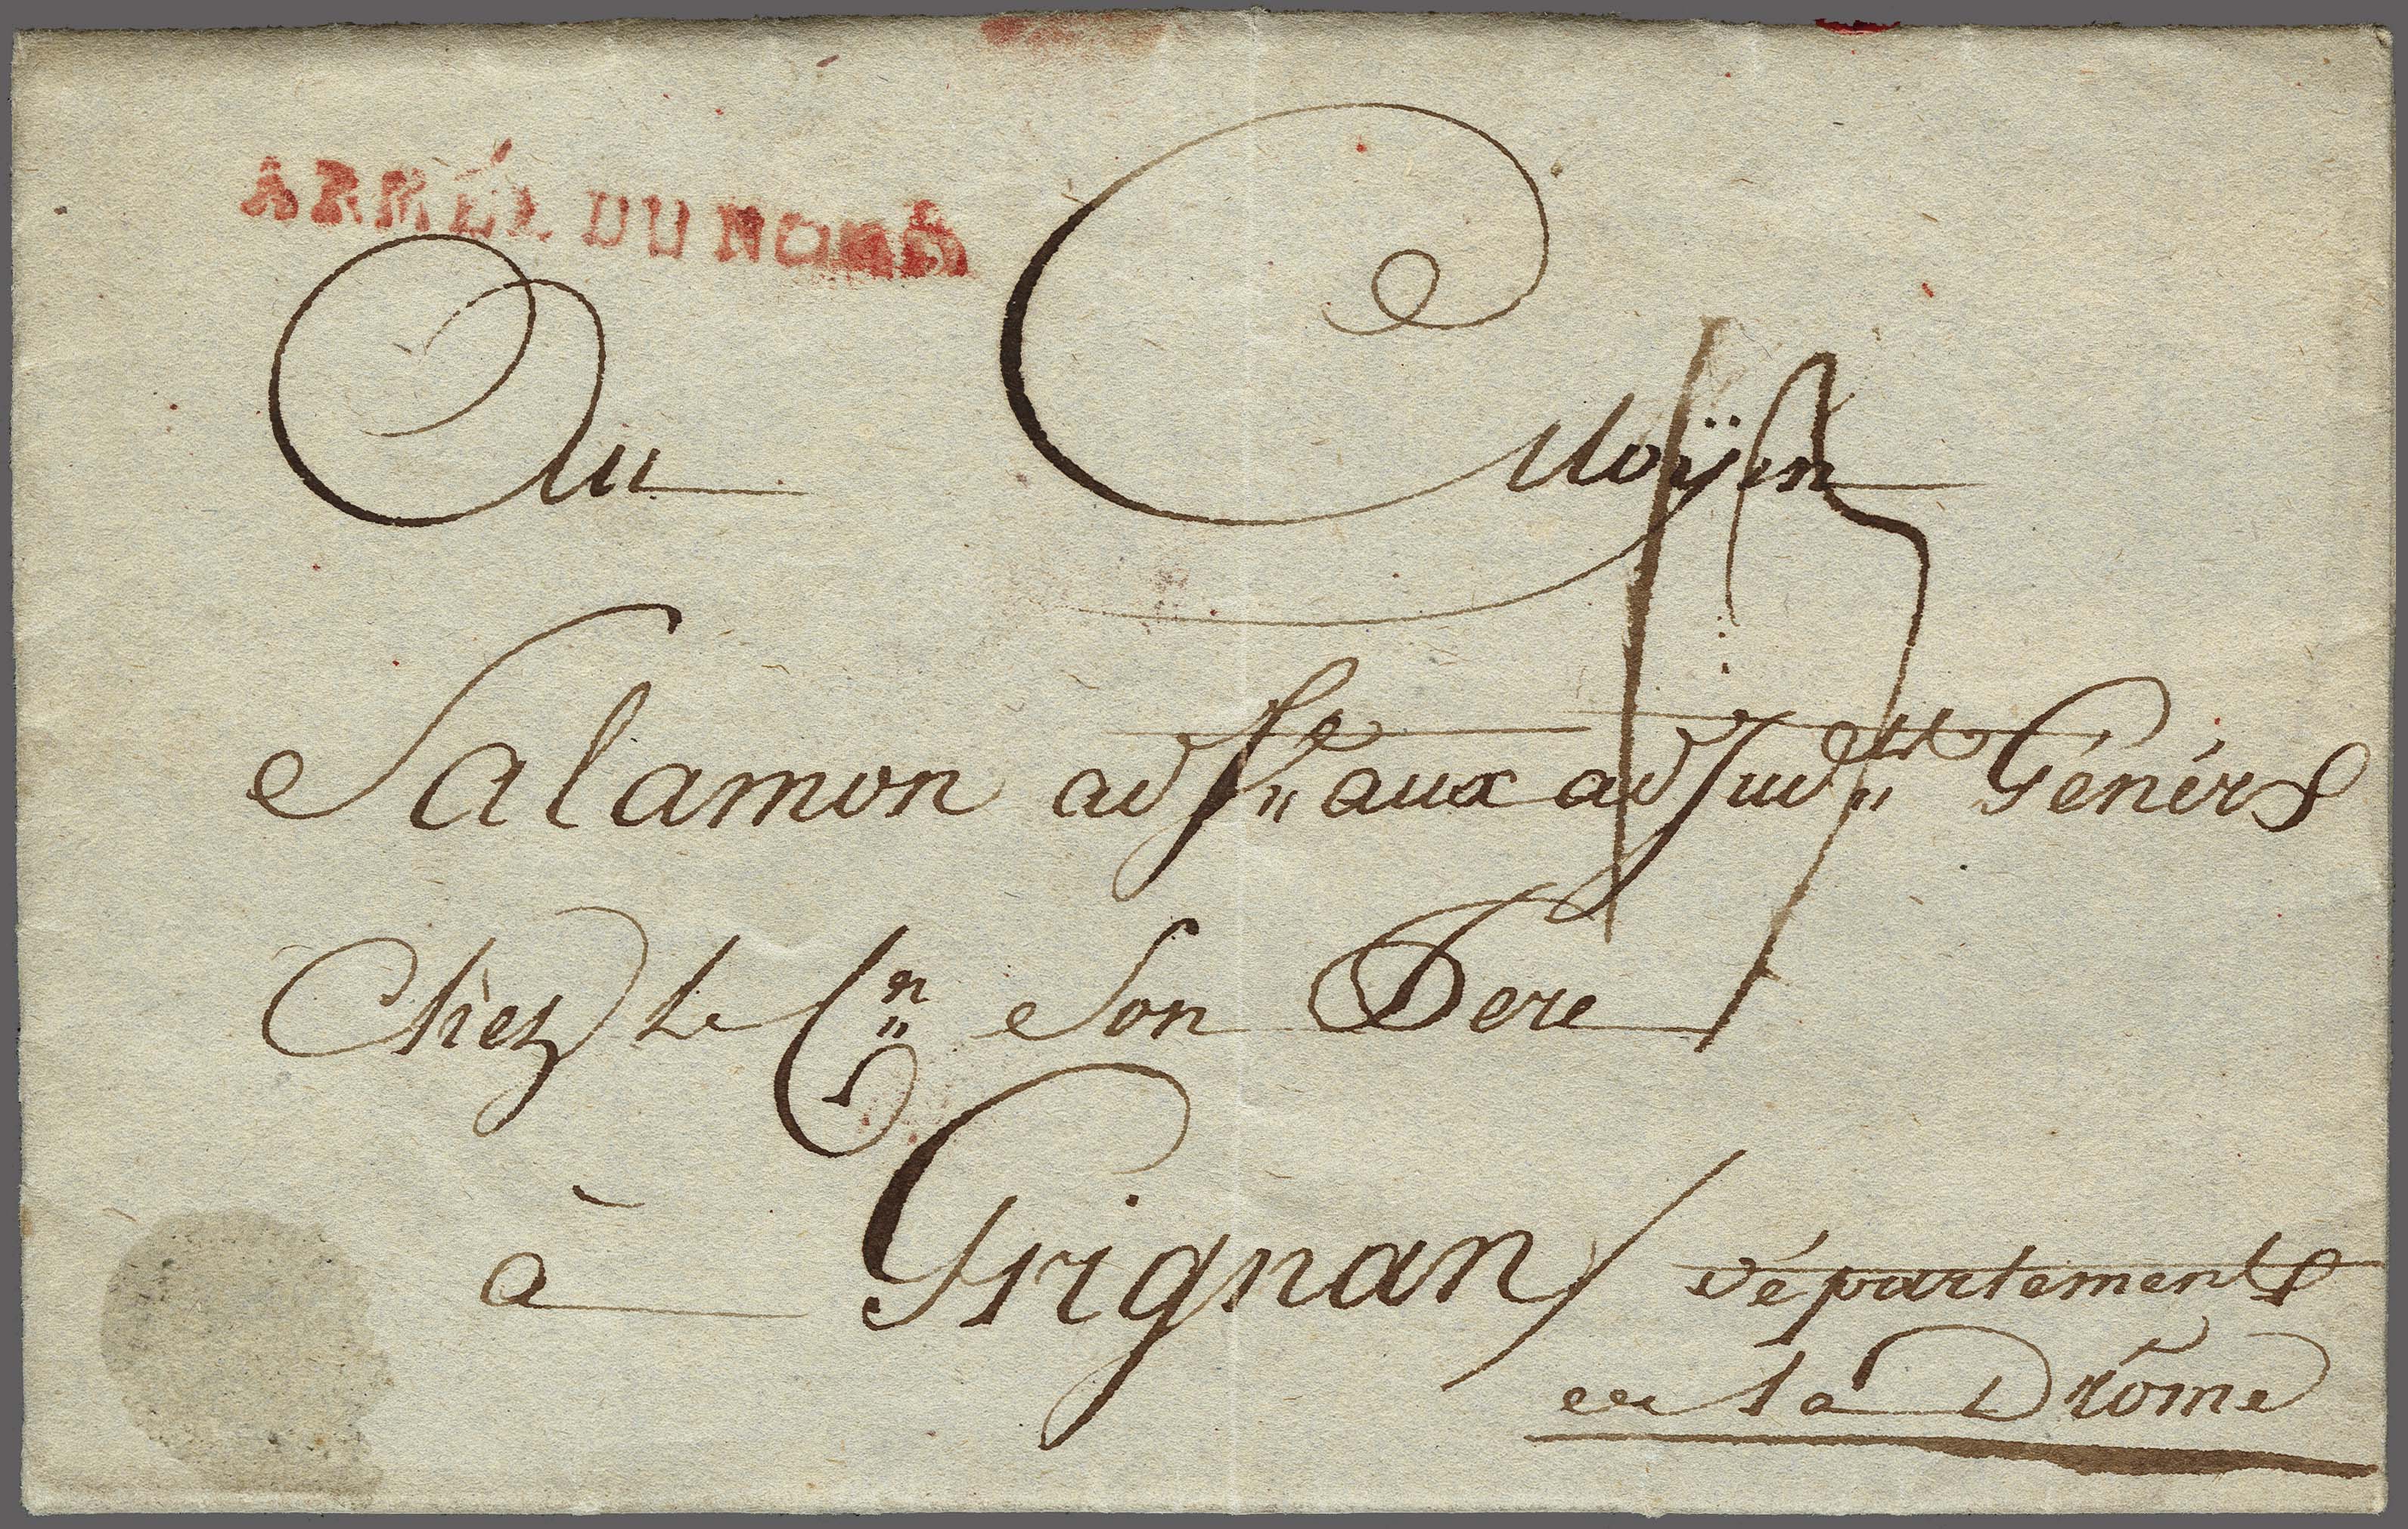 ARMÉE DU NORD
Au Citoÿen
Salamon adjt aux adjudts Générx
Chèz le Cn Son Pere
à Grignan / département
de la Drome